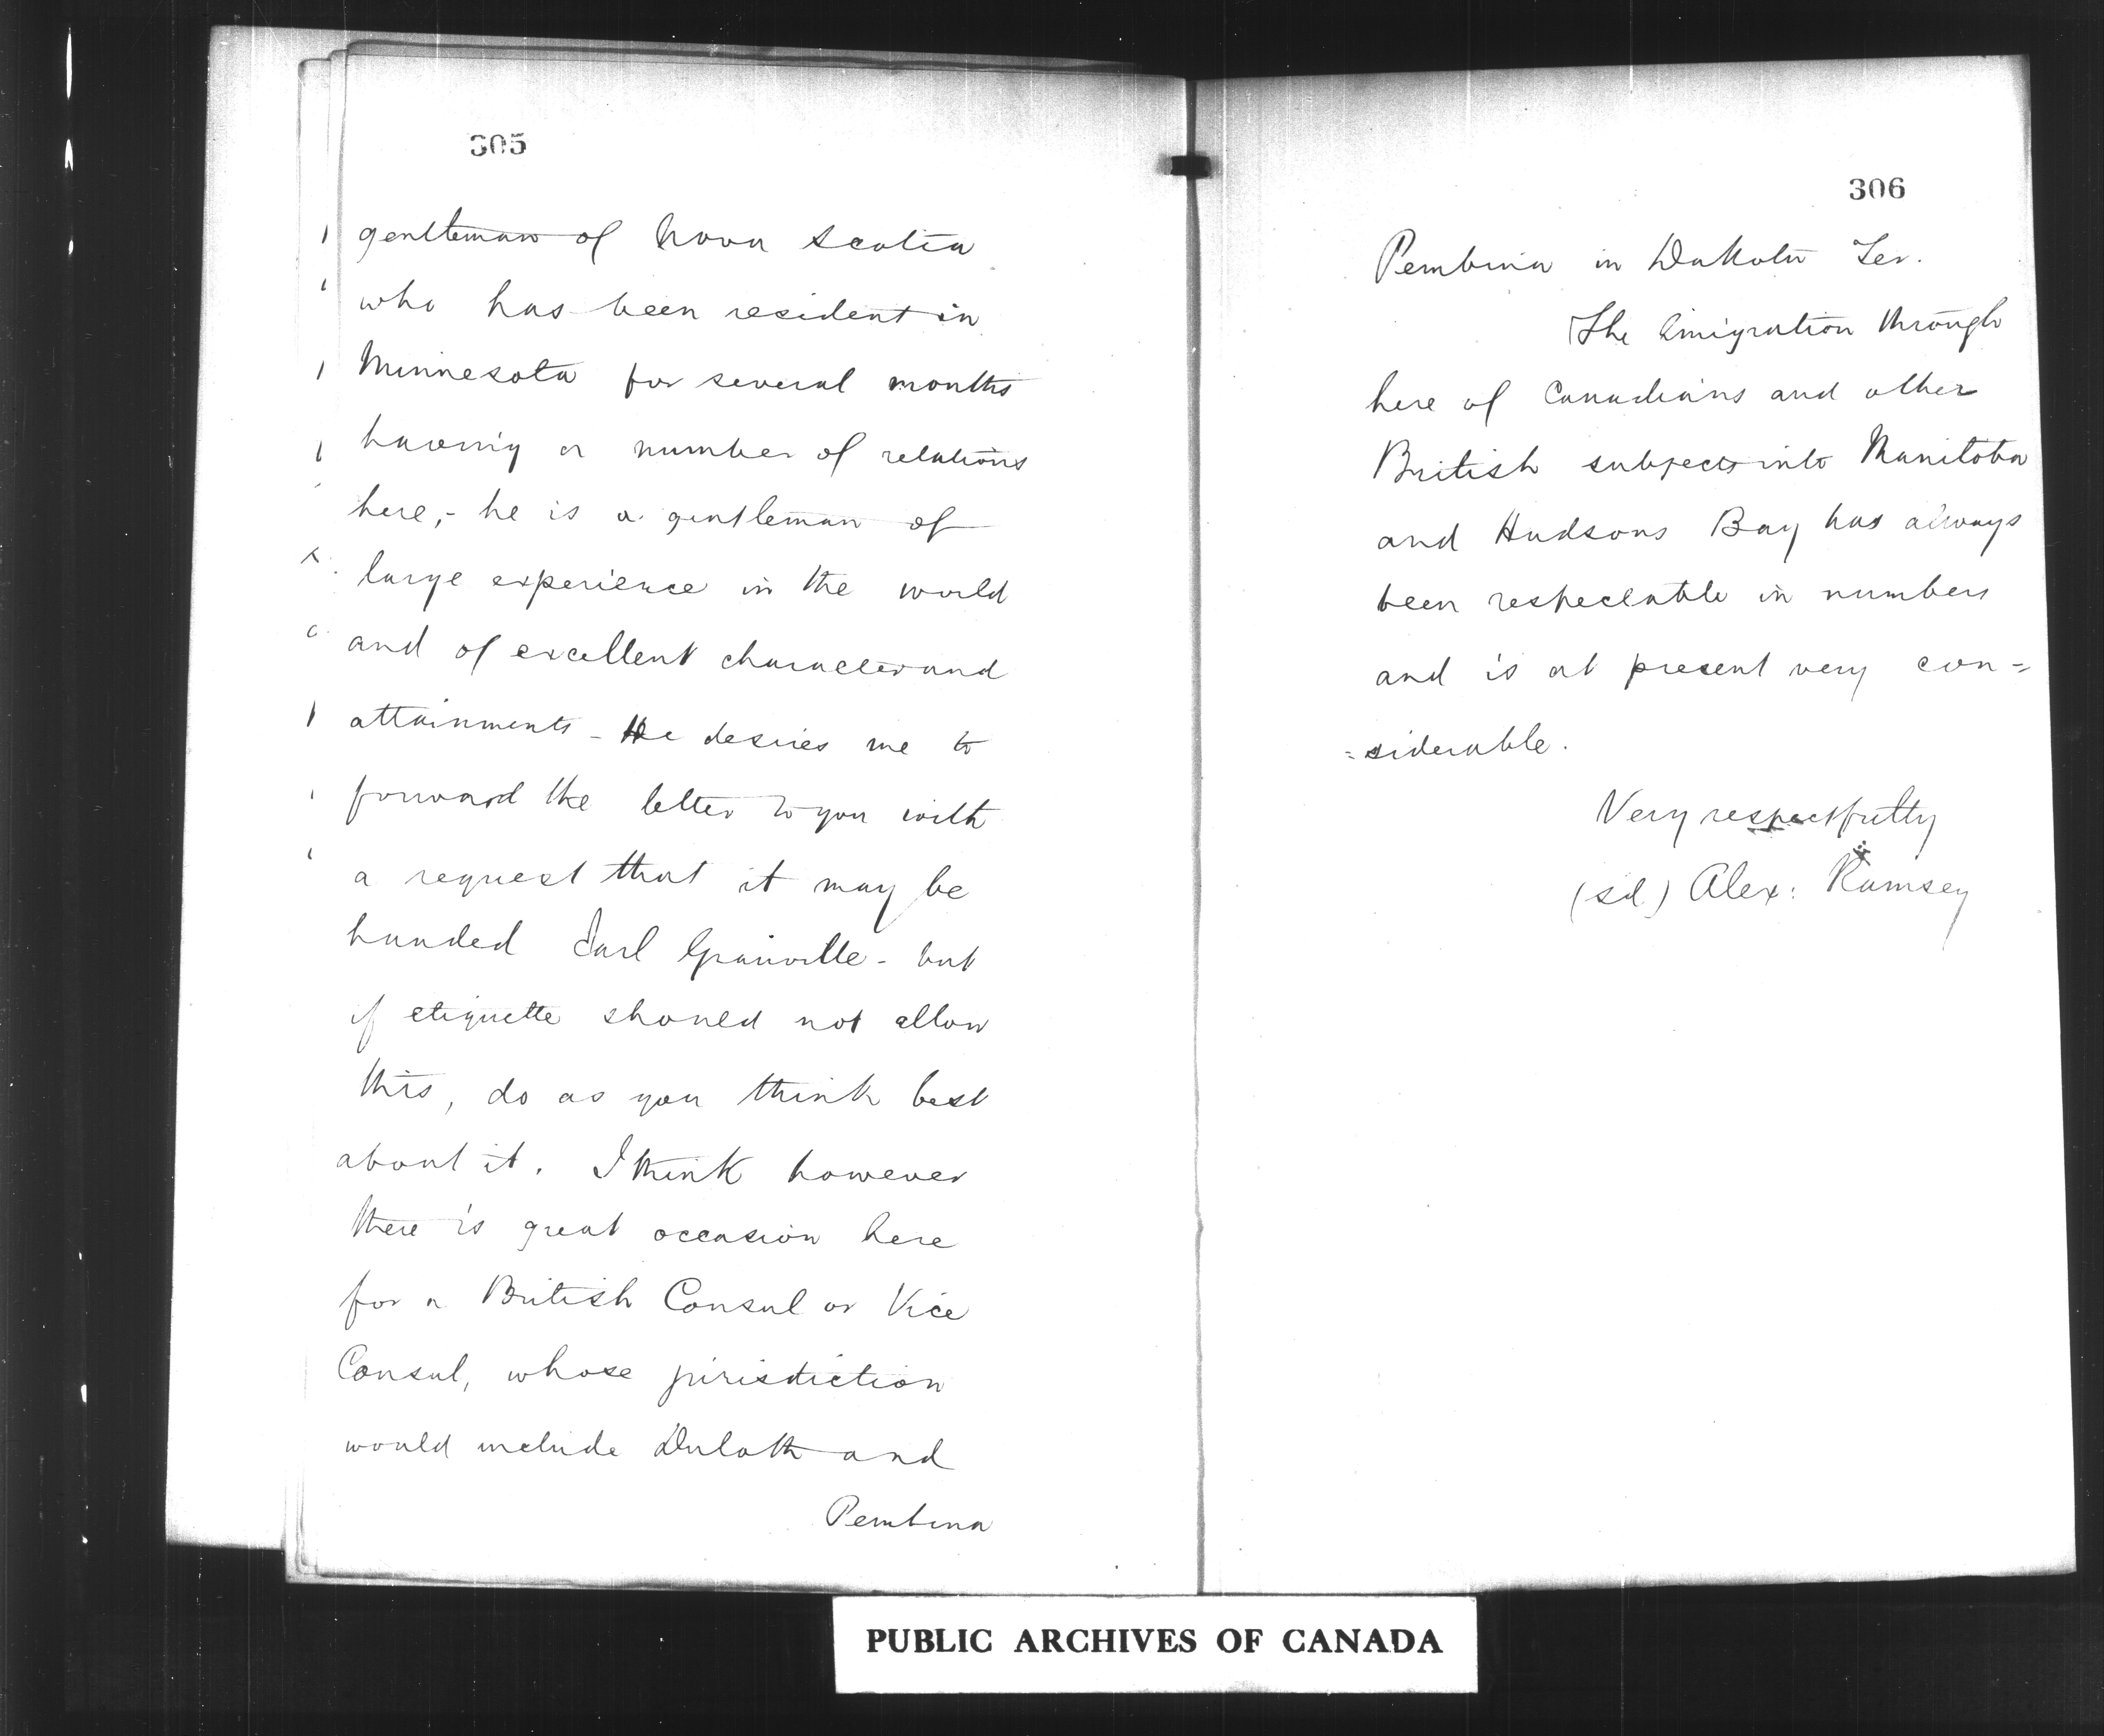 305
gentleman of Nova Scotia
who has been resident in
Minnesota for several months
having a number of relations
here,- he is a gentleman of
large experience in the world
and of excellent character and
attainments - He desires me to
forward the letter to you with
a request that it may be
handed Earl Granville - but
if etiquette should not allow
this, do as you think best
about it. I think however
there is great occasion here
for a British Consul or Vice
Consul, whose jurisdiction
would include Duluth and
Pembina
306
Pembina in Dakota Ter.
The Emigration through
here of Canadians and other
British subjects into Manitoba
and Hudsons Bay has always
been respectable in numbers
and is at present very con=
=siderable.
Very respectfully
(sd) Alex: Ramsey
PUBLIC ARCHIVES OF CANADA